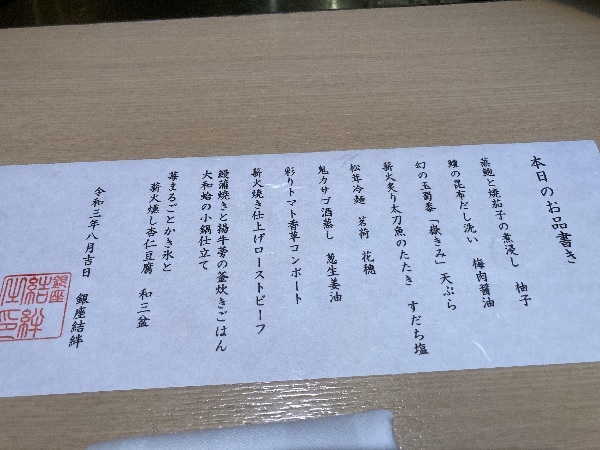 本日のお品書き
蒸鮑と焼茄子の煮浸し 柚子
鱧の昆布だし洗い 梅肉醤油
幻の玉蜀黍「嶽きみ」天ぷら
薪火炙り太刀魚のたたき すだち塩
松茸冷麺 茗荷 花穂
鬼カサゴ酒蒸し 葱生姜油
彩りトマト香草コンポート
薪火焼き仕上げローストビーフ
鰻蒲焼きと揚牛蒡の釜炊きごはん
大和蛤の小鍋仕立て
苺まるごとかき氷と
薪火燻し杏仁豆腐 和三盆
令和三年八月吉日
銀座結絆
銀座
結絆
之印